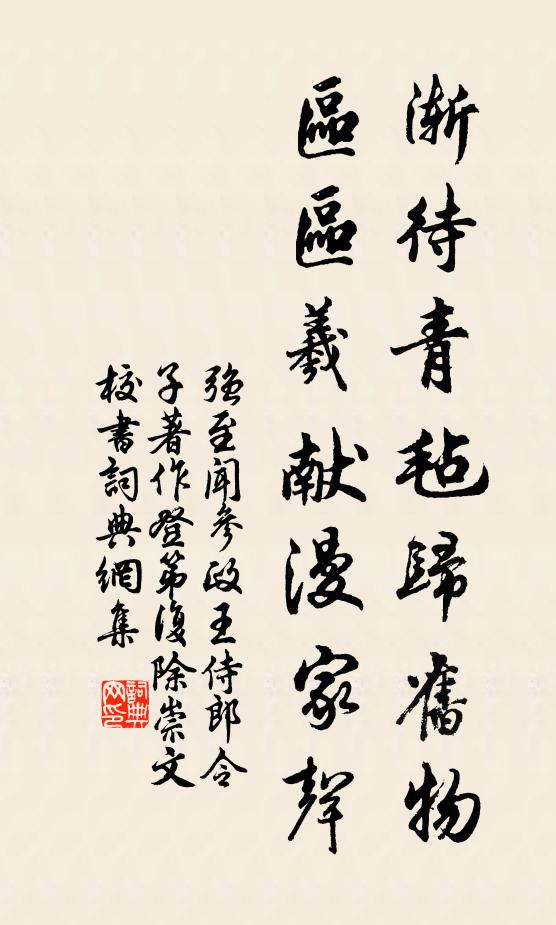 漸待青氊歸舊物
區區羲献漫家聲
强至聞參政王侍郎令
子著作登第復除崇文
校書詞典網集
詞典
网印